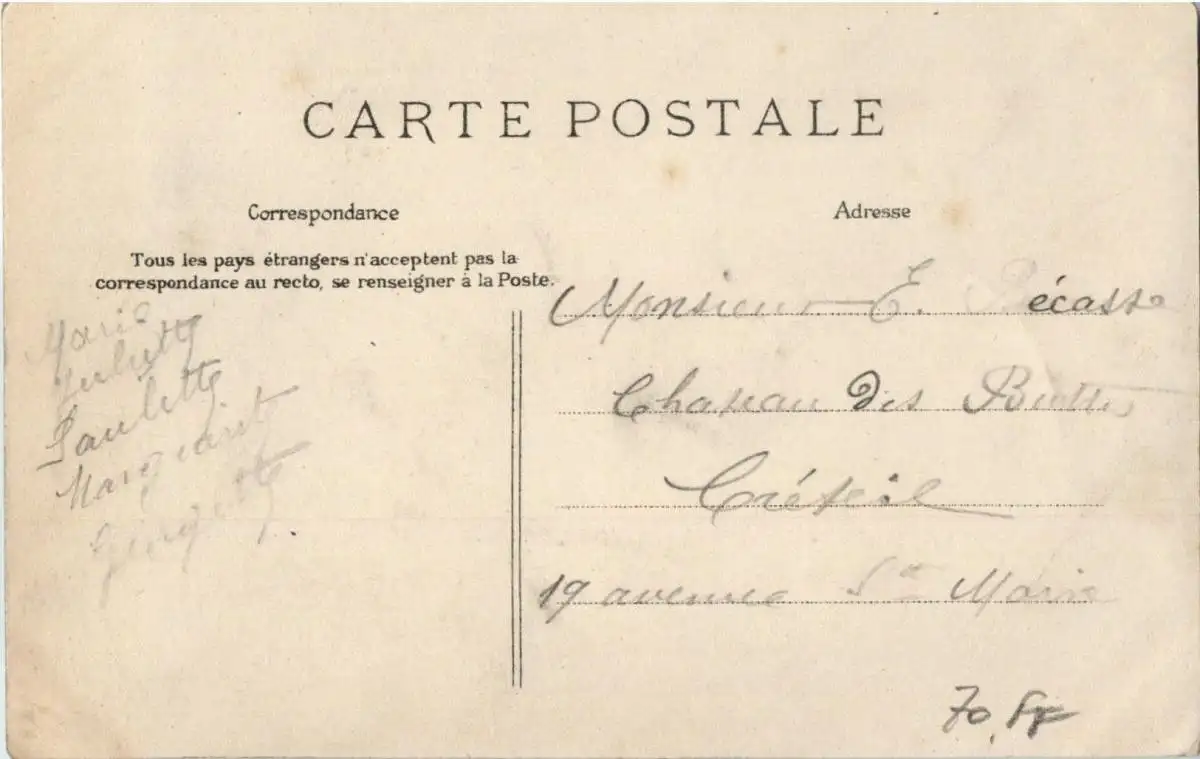 CARTE POSTALE
Correspondance
Tous les pays étrangers n'acceptent pas la
correspondance au recto, se renseigner à la Poste.
Marie
Juliette
Paulette
Adresse
Monsieur E. Bécasse
Chateau des Buttes
Créteil
19 avenue Ste Marie
70,FF